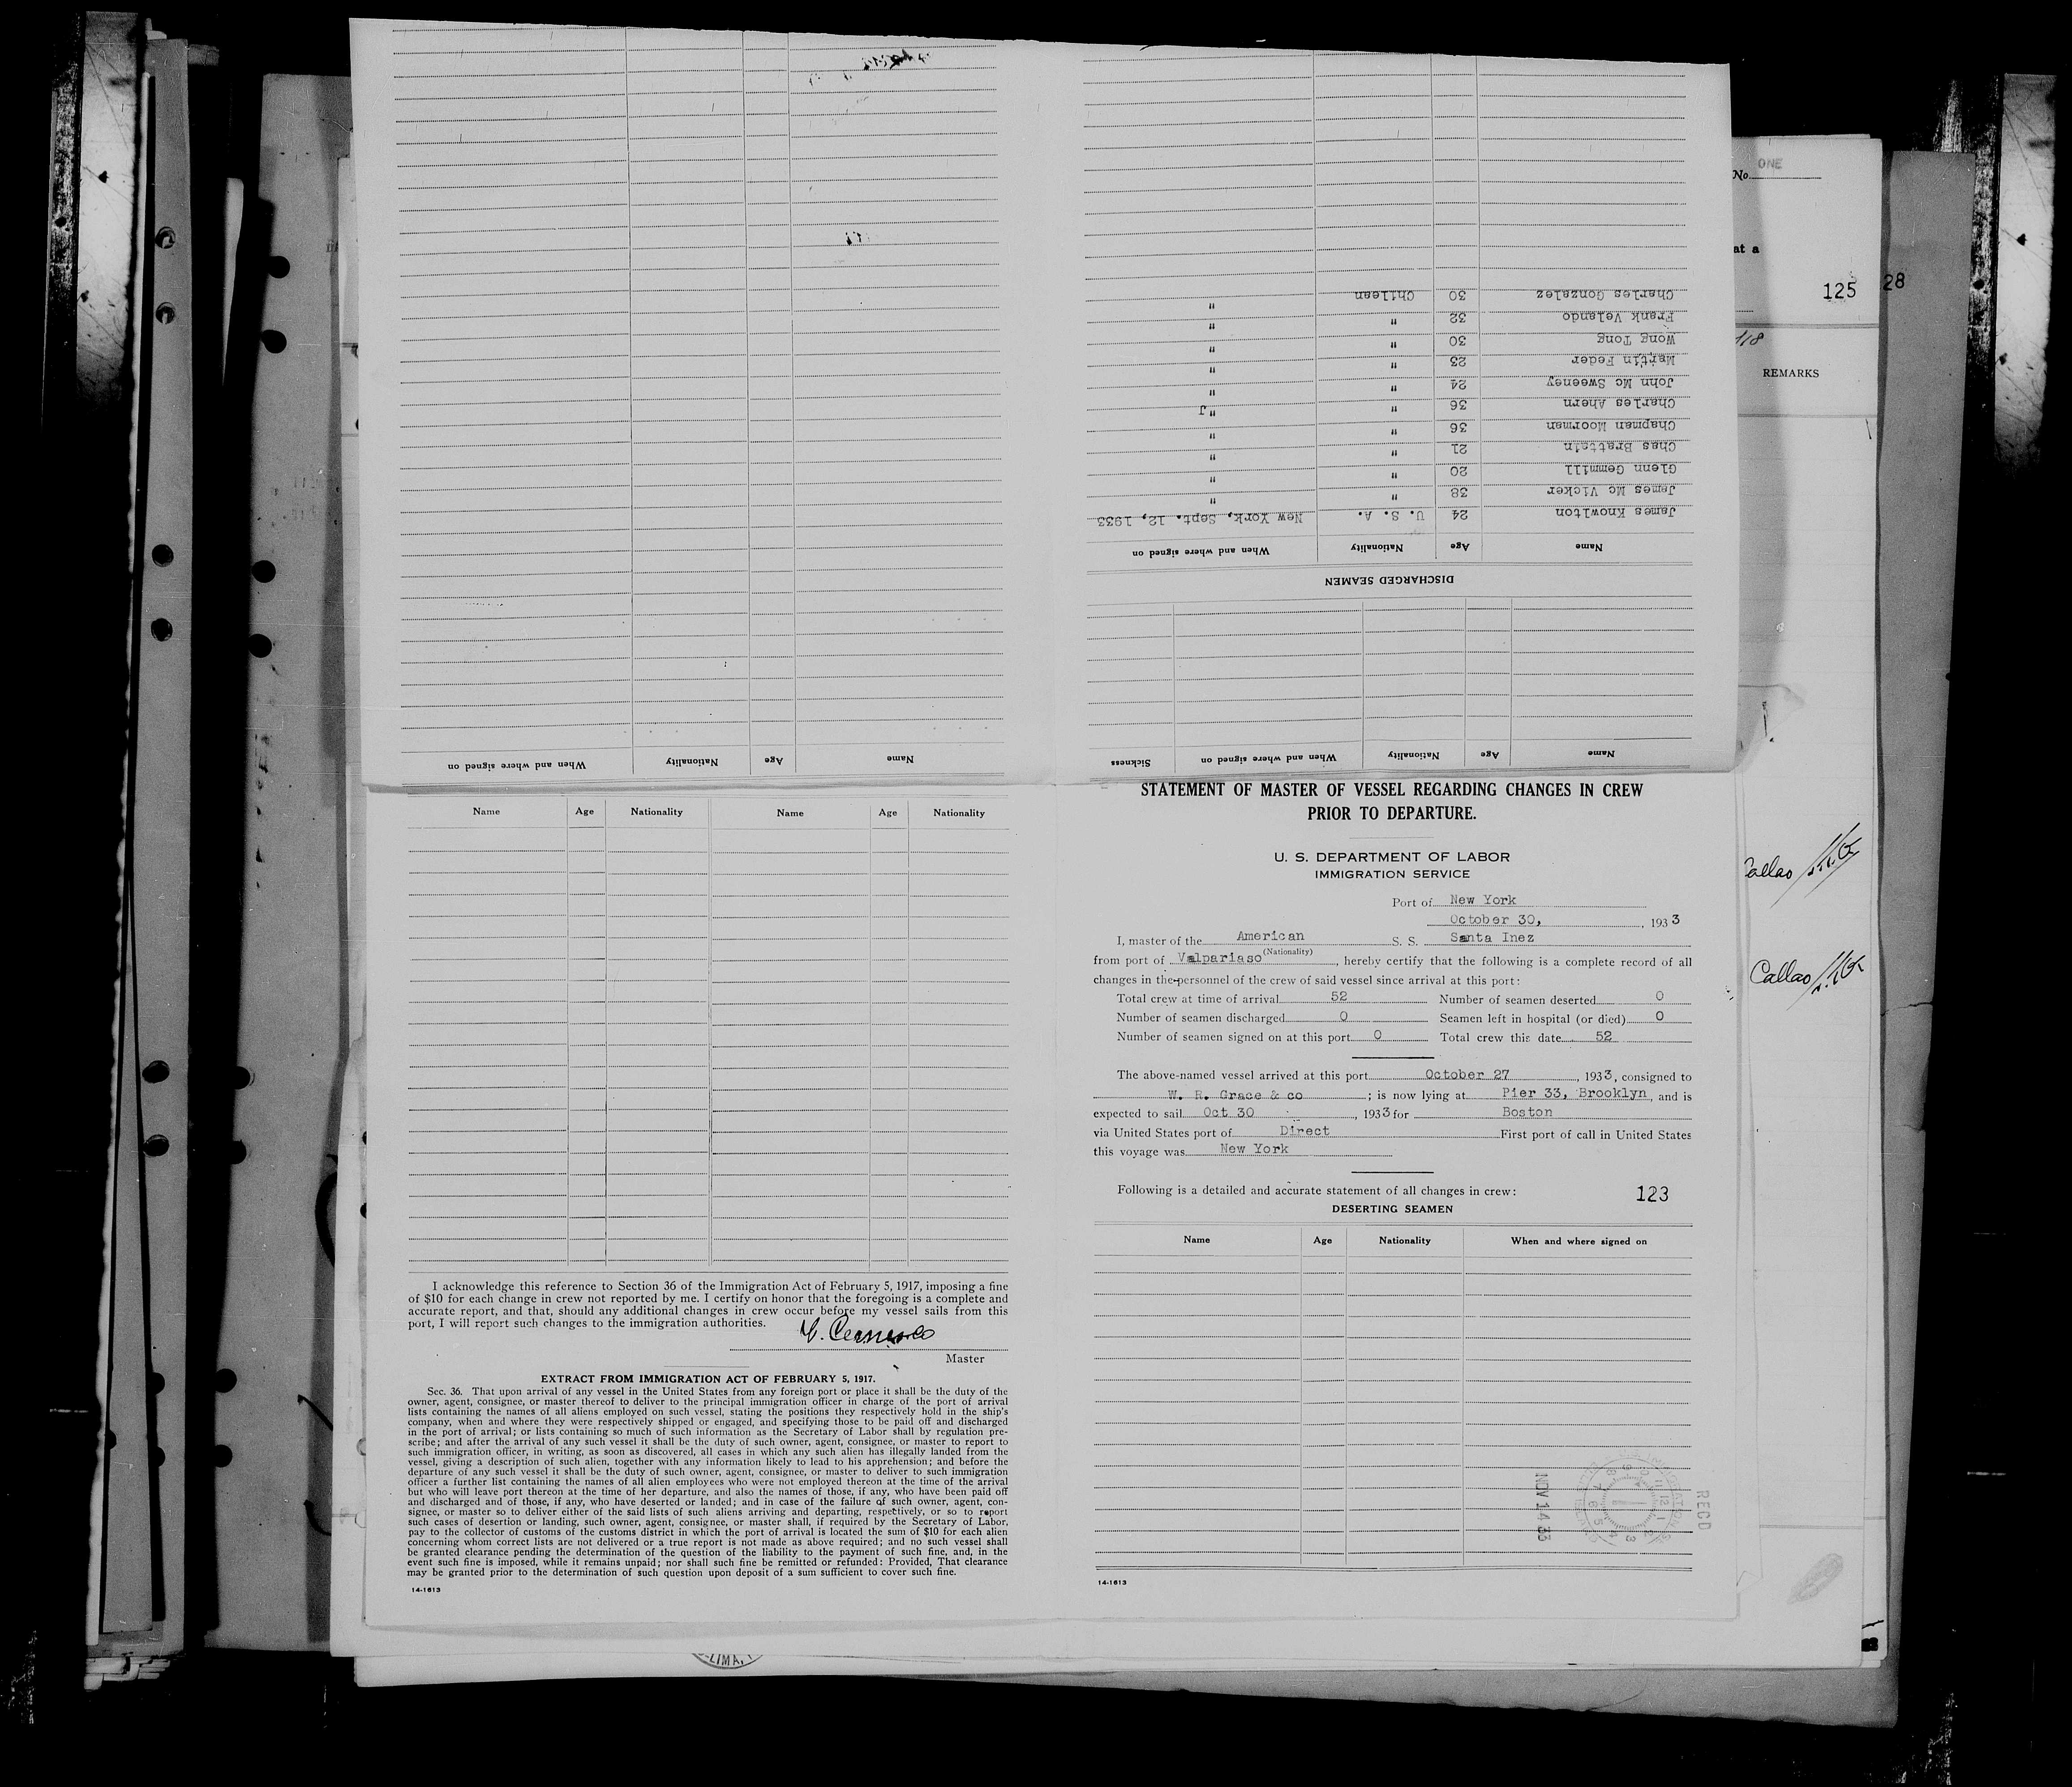 No. ONE
at a
125
28
118
REMARKS
Callao
Callao
Name Age Nationality When and where signed on
Name Age Nationality When and where signed on Sickness
DISCHARGED SEAMEN
Name Age Nationality When and where signed on
James Knowlton 24 U. S. A. New York, Sept. 12, 1933
James Mc Vicker 38 " "
Glenn Gemmill 20 " "
Chas Brattain 21 " "
Chapman Moorman 36 " "
Charles Ahern 36 " "
John Mc Sweeney 24 " "
Martin Feder 23 " "
Wong Tong 30 " "
Frank Velando 32 " "
Charles Gonzalez 30 Chilean "
Name Age Nationality Name Age Nationality
I acknowledge this reference to Section 36 of the Immigration Act of February 5, 1917, imposing a fine
of $10 for each change in crew not reported by me. I certify on honor that the foregoing is a complete and
accurate report, and that, should any additional changes in crew occur before my vessel sails from this
port, I will report such changes to the immigration authorities.
Master
EXTRACT FROM IMMIGRATION ACT OF FEBRUARY 5, 1917.
Sec. 36. That upon arrival of any vessel in the United States from any foreign port or place it shall be the duty of the
owner, agent, consignee, or master thereof to deliver to the principal immigration officer in charge of the port of arrival
lists containing the names of all aliens employed on such vessel, stating the positions they respectively hold in the ship's
company, when and where they were respectively shipped or engaged, and specifying those to be paid off and discharged
in the port of arrival; or lists containing so much of such information as the Secretary of Labor shall by regulation pre-
scribe; and after the arrival of any such vessel it shall be the duty of such owner, agent, consignee, or master to report to
such immigration officer, in writing, as soon as discovered, all cases in which any such alien has illegally landed from the
vessel, giving a description of such alien, together with any information likely to lead to his apprehension; and before the
departure of any such vessel it shall be the duty of such owner, agent, consignee, or master to deliver to such immigration
officer a further list containing the names of all alien employees who were not employed thereon at the time of the arrival
but who will leave port thereon at the time of her departure, and also the names of those, if any, who have been paid off
and discharged and of those, if any, who have deserted or landed; and in case of the failure of such owner, agent, con-
signee, or master so to deliver either of the said lists of such aliens arriving and departing, respectively, or so to report
such cases of desertion or landing, such owner, agent, consignee, or master shall, if required by the Secretary of Labor,
pay to the collector of customs of the customs district in which the port of arrival is located the sum of $10 for each alien
concerning whom correct lists are not delivered or a true report is not made as above required; and no such vessel shall
be granted clearance pending the determination of the question of the liability to the payment of such fine, and, in the
event such fine is imposed, while it remains unpaid; nor shall such fine be remitted or refunded: Provided, That clearance
may be granted prior to the determination of such question upon deposit of a sum sufficient to cover such fine.
14-1613
STATEMENT OF MASTER OF VESSEL REGARDING CHANGES IN CREW
PRIOR TO DEPARTURE.
U. S. DEPARTMENT OF LABOR
IMMIGRATION SERVICE
Port of New York
October 30, , 1933
I, master of the American S. S. Santa Inez
(Nationality)
from port of Valpariaso , hereby certify that the following is a complete record of all
changes in the personnel of the crew of said vessel since arrival at this port:
Total crew at time of arrival 52 Number of seamen deserted 0
Number of seamen discharged 0 Seamen left in hospital (or died) 0
Number of seamen signed on at this port 0 Total crew this date 52
The above-named vessel arrived at this port October 27 , 1933, consigned to
W. R. Grace & co ; is now lying at Pier 33, Brooklyn, and is
expected to sail Oct 30 , 1933 for Boston
via United States port of Direct First port of call in United States
this voyage was New York
Following is a detailed and accurate statement of all changes in crew: 123
DESERTING SEAMEN
Name Age Nationality When and where signed on
NOV 14 33
RECD
14-1613
LIMA